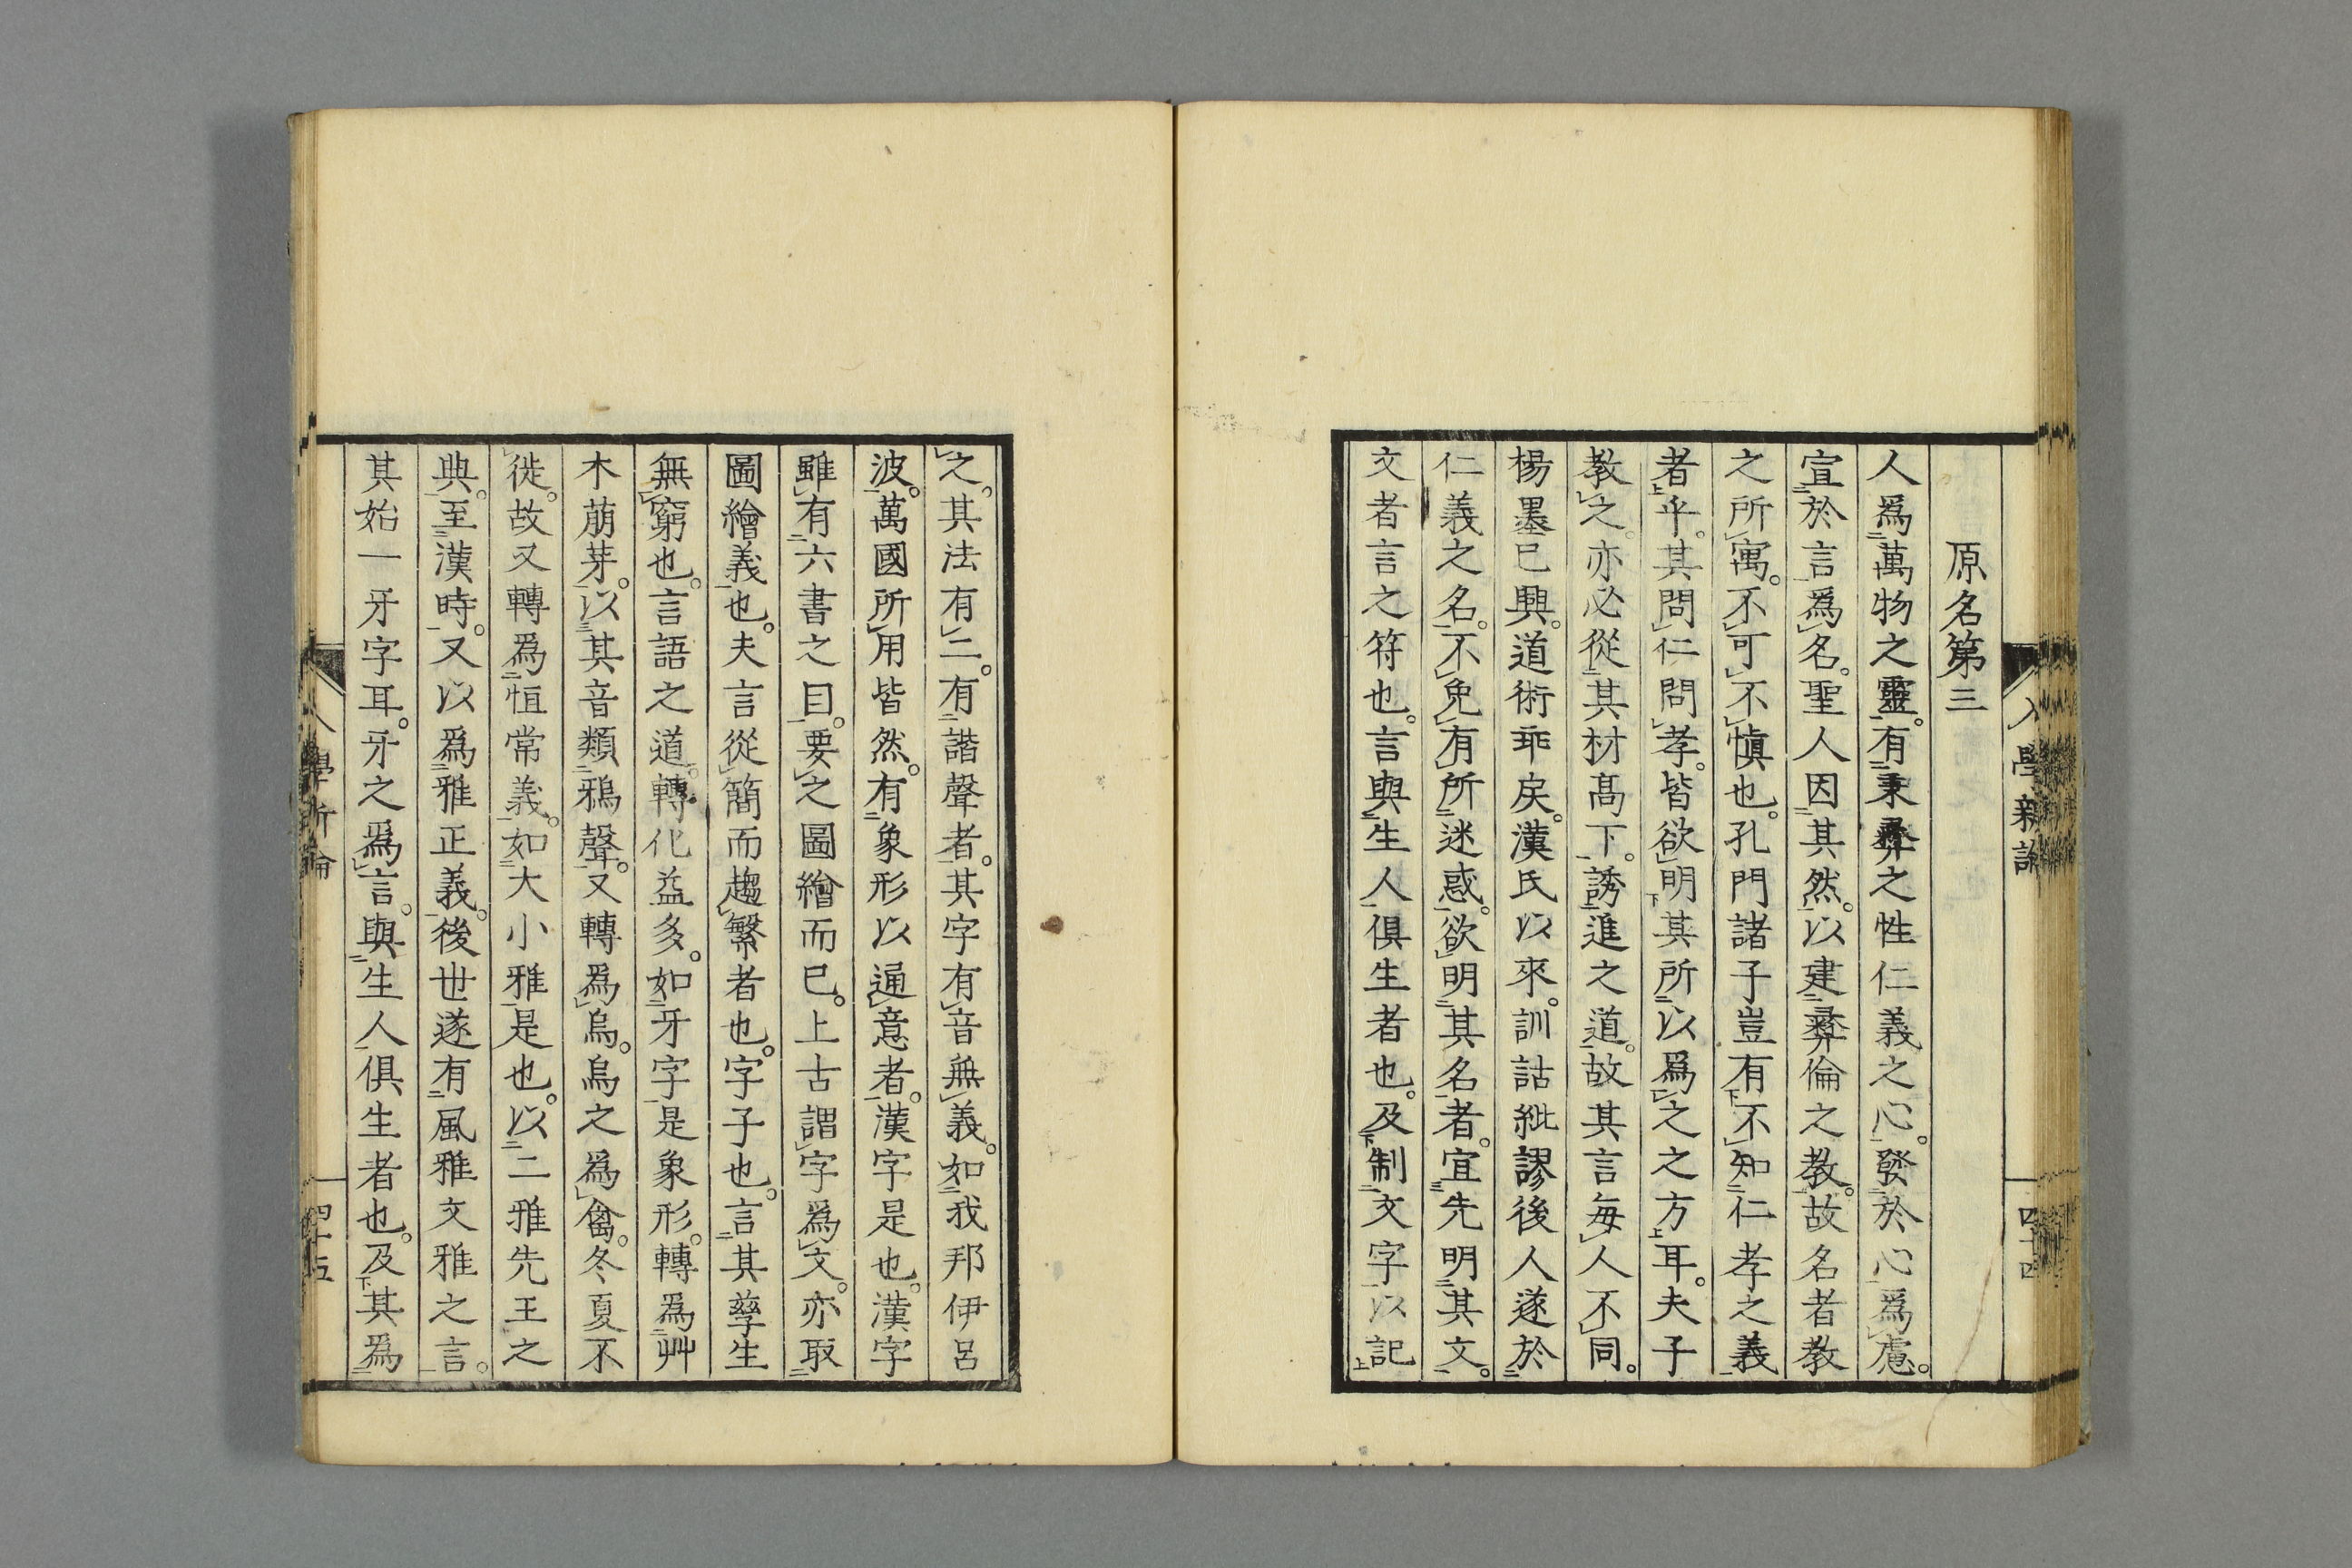 原名第三
人爲萬物之靈。有秉彝之性仁義之心。發於心爲慮。
宣於言爲名。聖人因其然。以建彝倫之教。故名者教
之所寓。不可不愼也。孔門諸子豈有不知仁孝之義
者乎。其問仁問孝。皆欲明其所以爲之之方耳。夫子
教之。亦必從其材髙下。誘進之道。故其言毎人不同。
楊墨已興。道術乖戾。漢氏以來。訓詁紕謬後人遂於
仁義之名。不免有所迷惑。欲明其名者。宜先明其文。
文者言之符也。言與生人俱生者也。及制文字以記
之。其法有二。有諧聲者。其字有音無義。如我邦伊呂
波。萬國所用皆然。有象形以通意者。漢字是也。漢字
雖有六書之目。要之圖繪而已。上古謂字爲文。亦取
圖繪義也。夫言從簡而趨繁者也。字子也。言其孳生
無窮也。言語之道。轉化益多。如牙字是象形。轉爲艸
木萠芽。以其音類鴉聲。又轉爲烏。烏之爲禽。冬夏不
徙。故又轉爲恒常義。如大小雅是也。以二雅先王之
典。至漢時。又以爲雅正義。後世遂有風雅文雅之言。
其始一牙字耳。牙之爲言。與生人俱生者也。及其爲
四十五